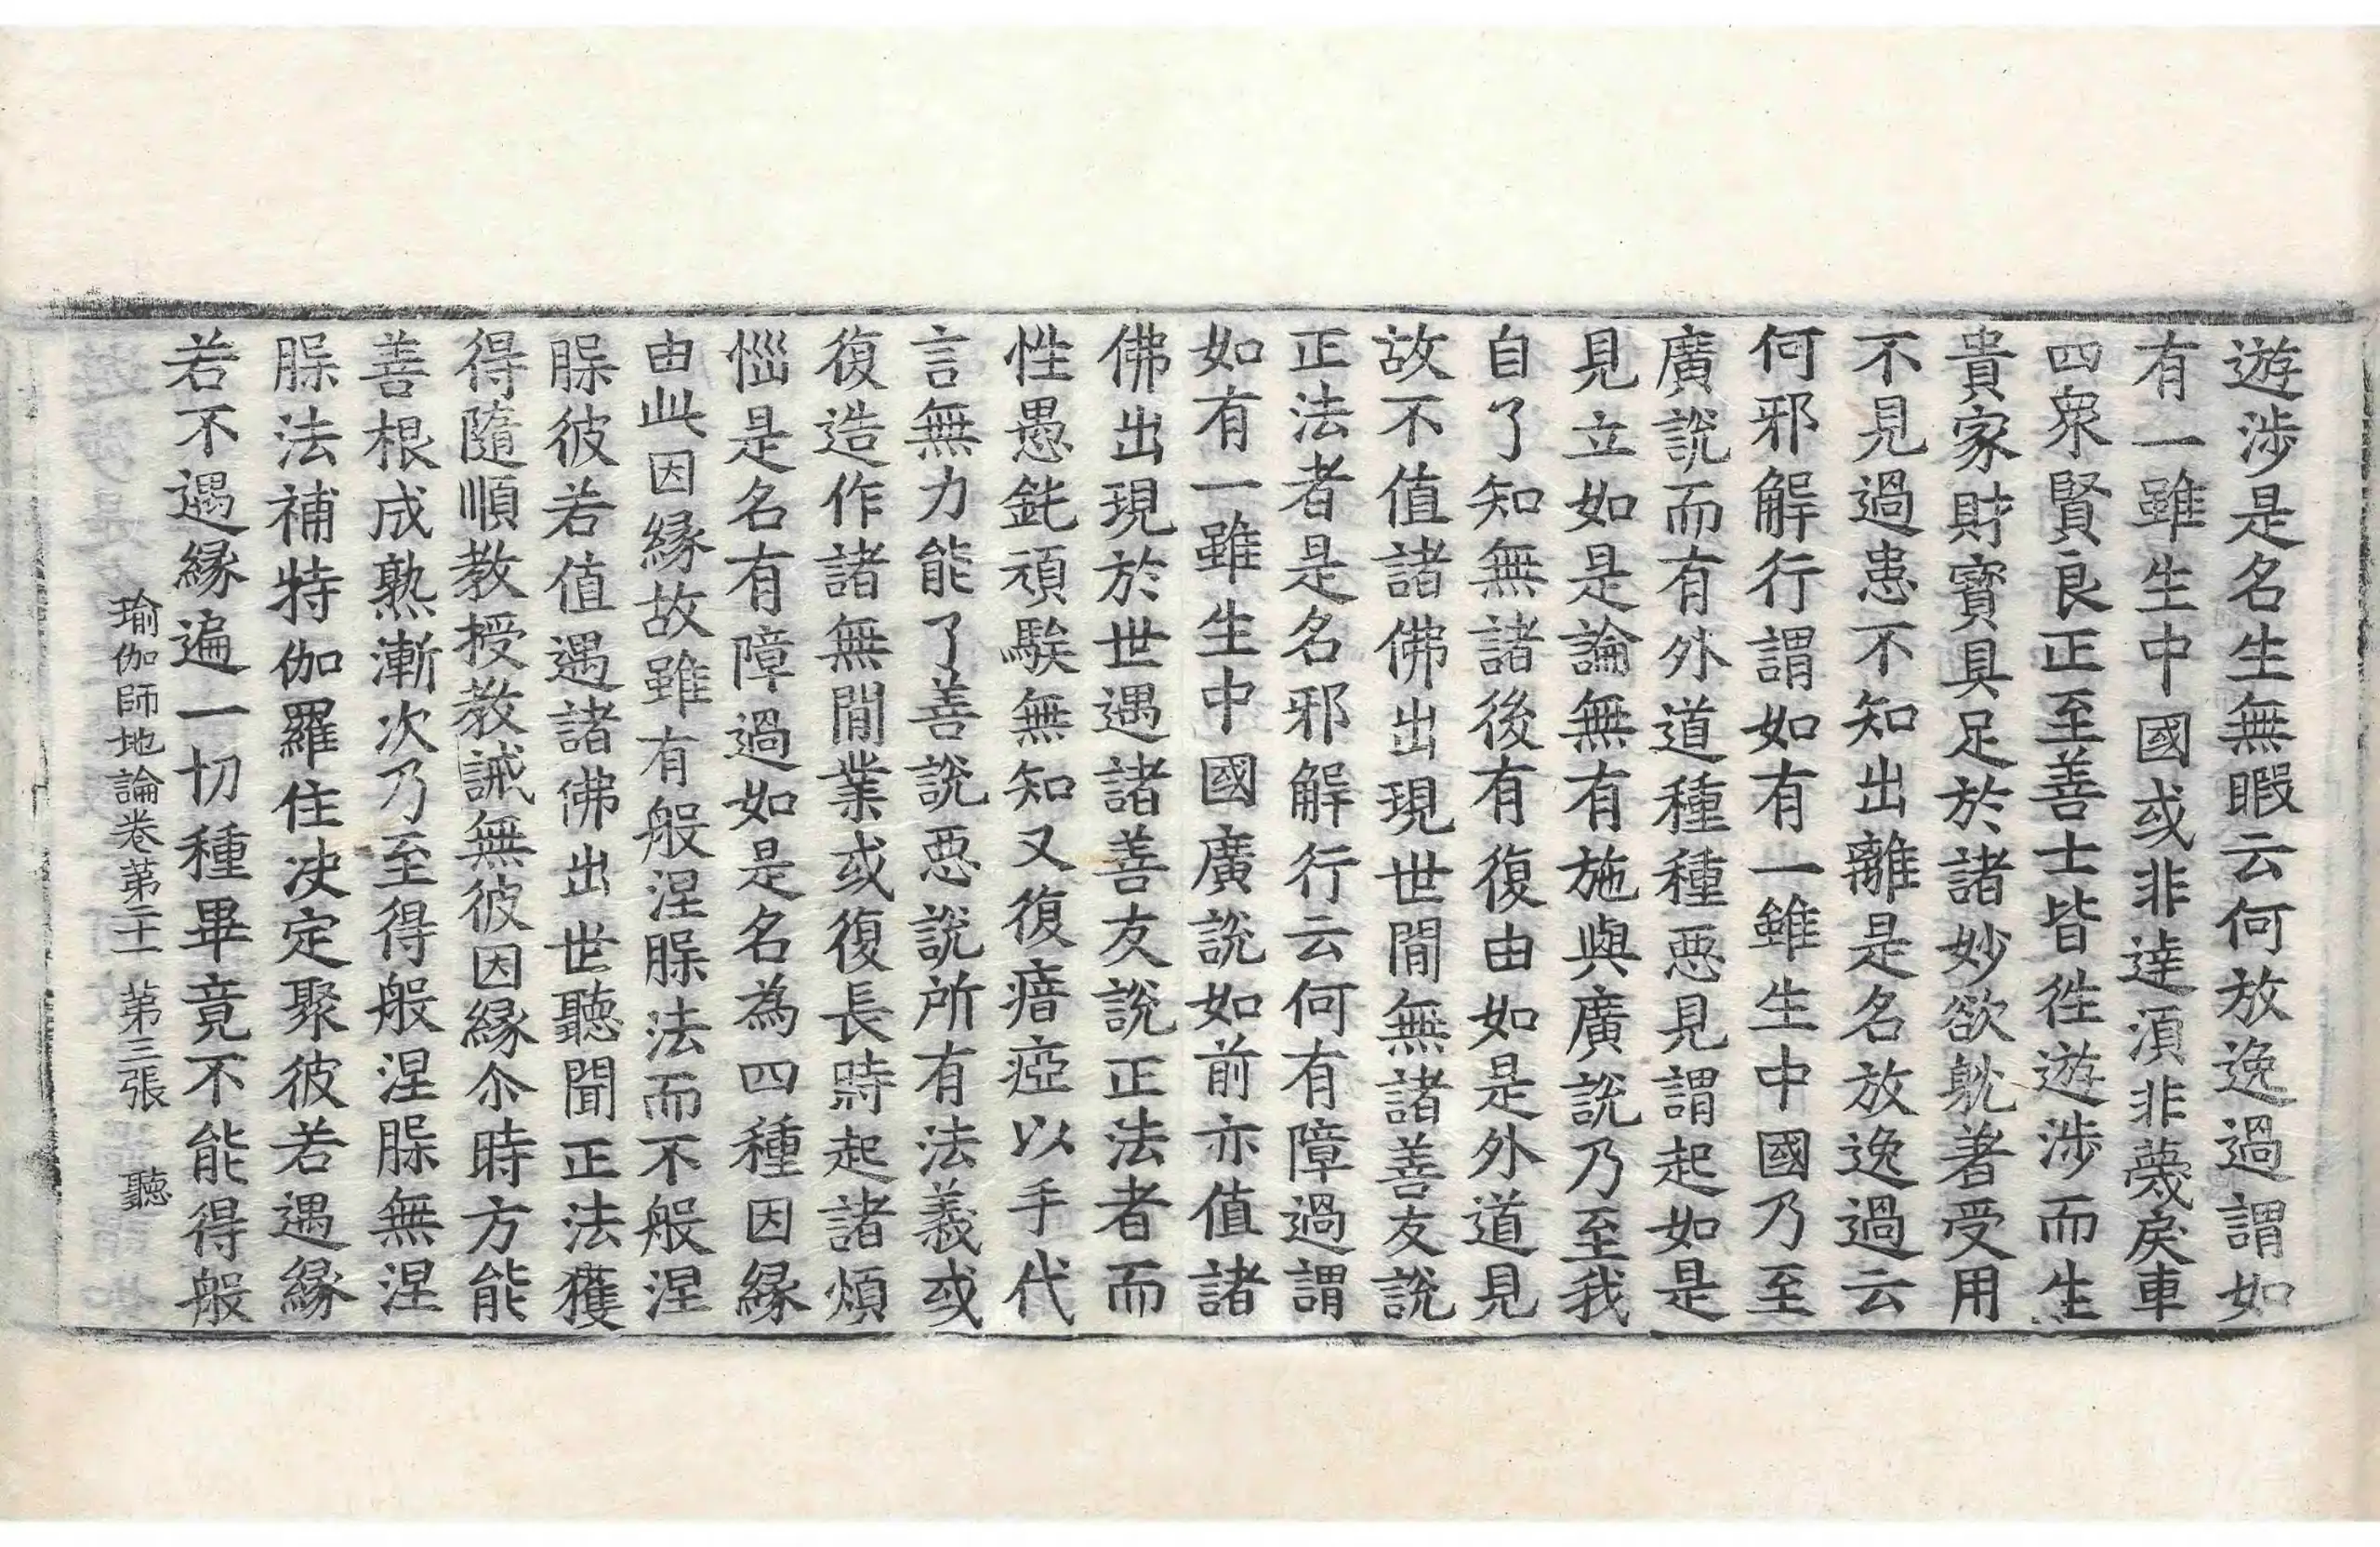 遊涉是名生無暇云何放逸過謂如
有一雖生中國或非達須非蔑戾車
四衆賢良正至善士皆徃遊涉而生
貴家財寶具足於諸妙欲躭著受用
不見過患不知出離是名放逸過云
何邪解行謂如有一雖生中國乃至
廣說而有外道種種惡見謂起如是
見立如是論無有施與廣說乃至我
自了知無諸後有復由如是外道見
故不值諸佛出現世間無諸善友說
正法者是名邪解行云何有障過謂
如有一雖生中國廣說如前亦值諸
佛出現於世遇諸善友說正法者而
性愚鈍頑騃無知又復瘖瘂以手代
言無力能了善說惡說所有法義或
復造作諸無間業或復長時起諸煩
惱是名有障過如是名為四種因緣
由此因緣故雖有般涅槃法而不般涅
槃彼若值遇諸佛出世聽聞正法獲
得隨順教授教誡無彼因緣尒時方能
善根成熟漸次乃至得般涅槃無涅
槃法補特伽羅住决定聚彼若遇緣
若不遇緣遍一切種畢竟不能得般
瑜伽師地論卷第二十一 第三張 聽